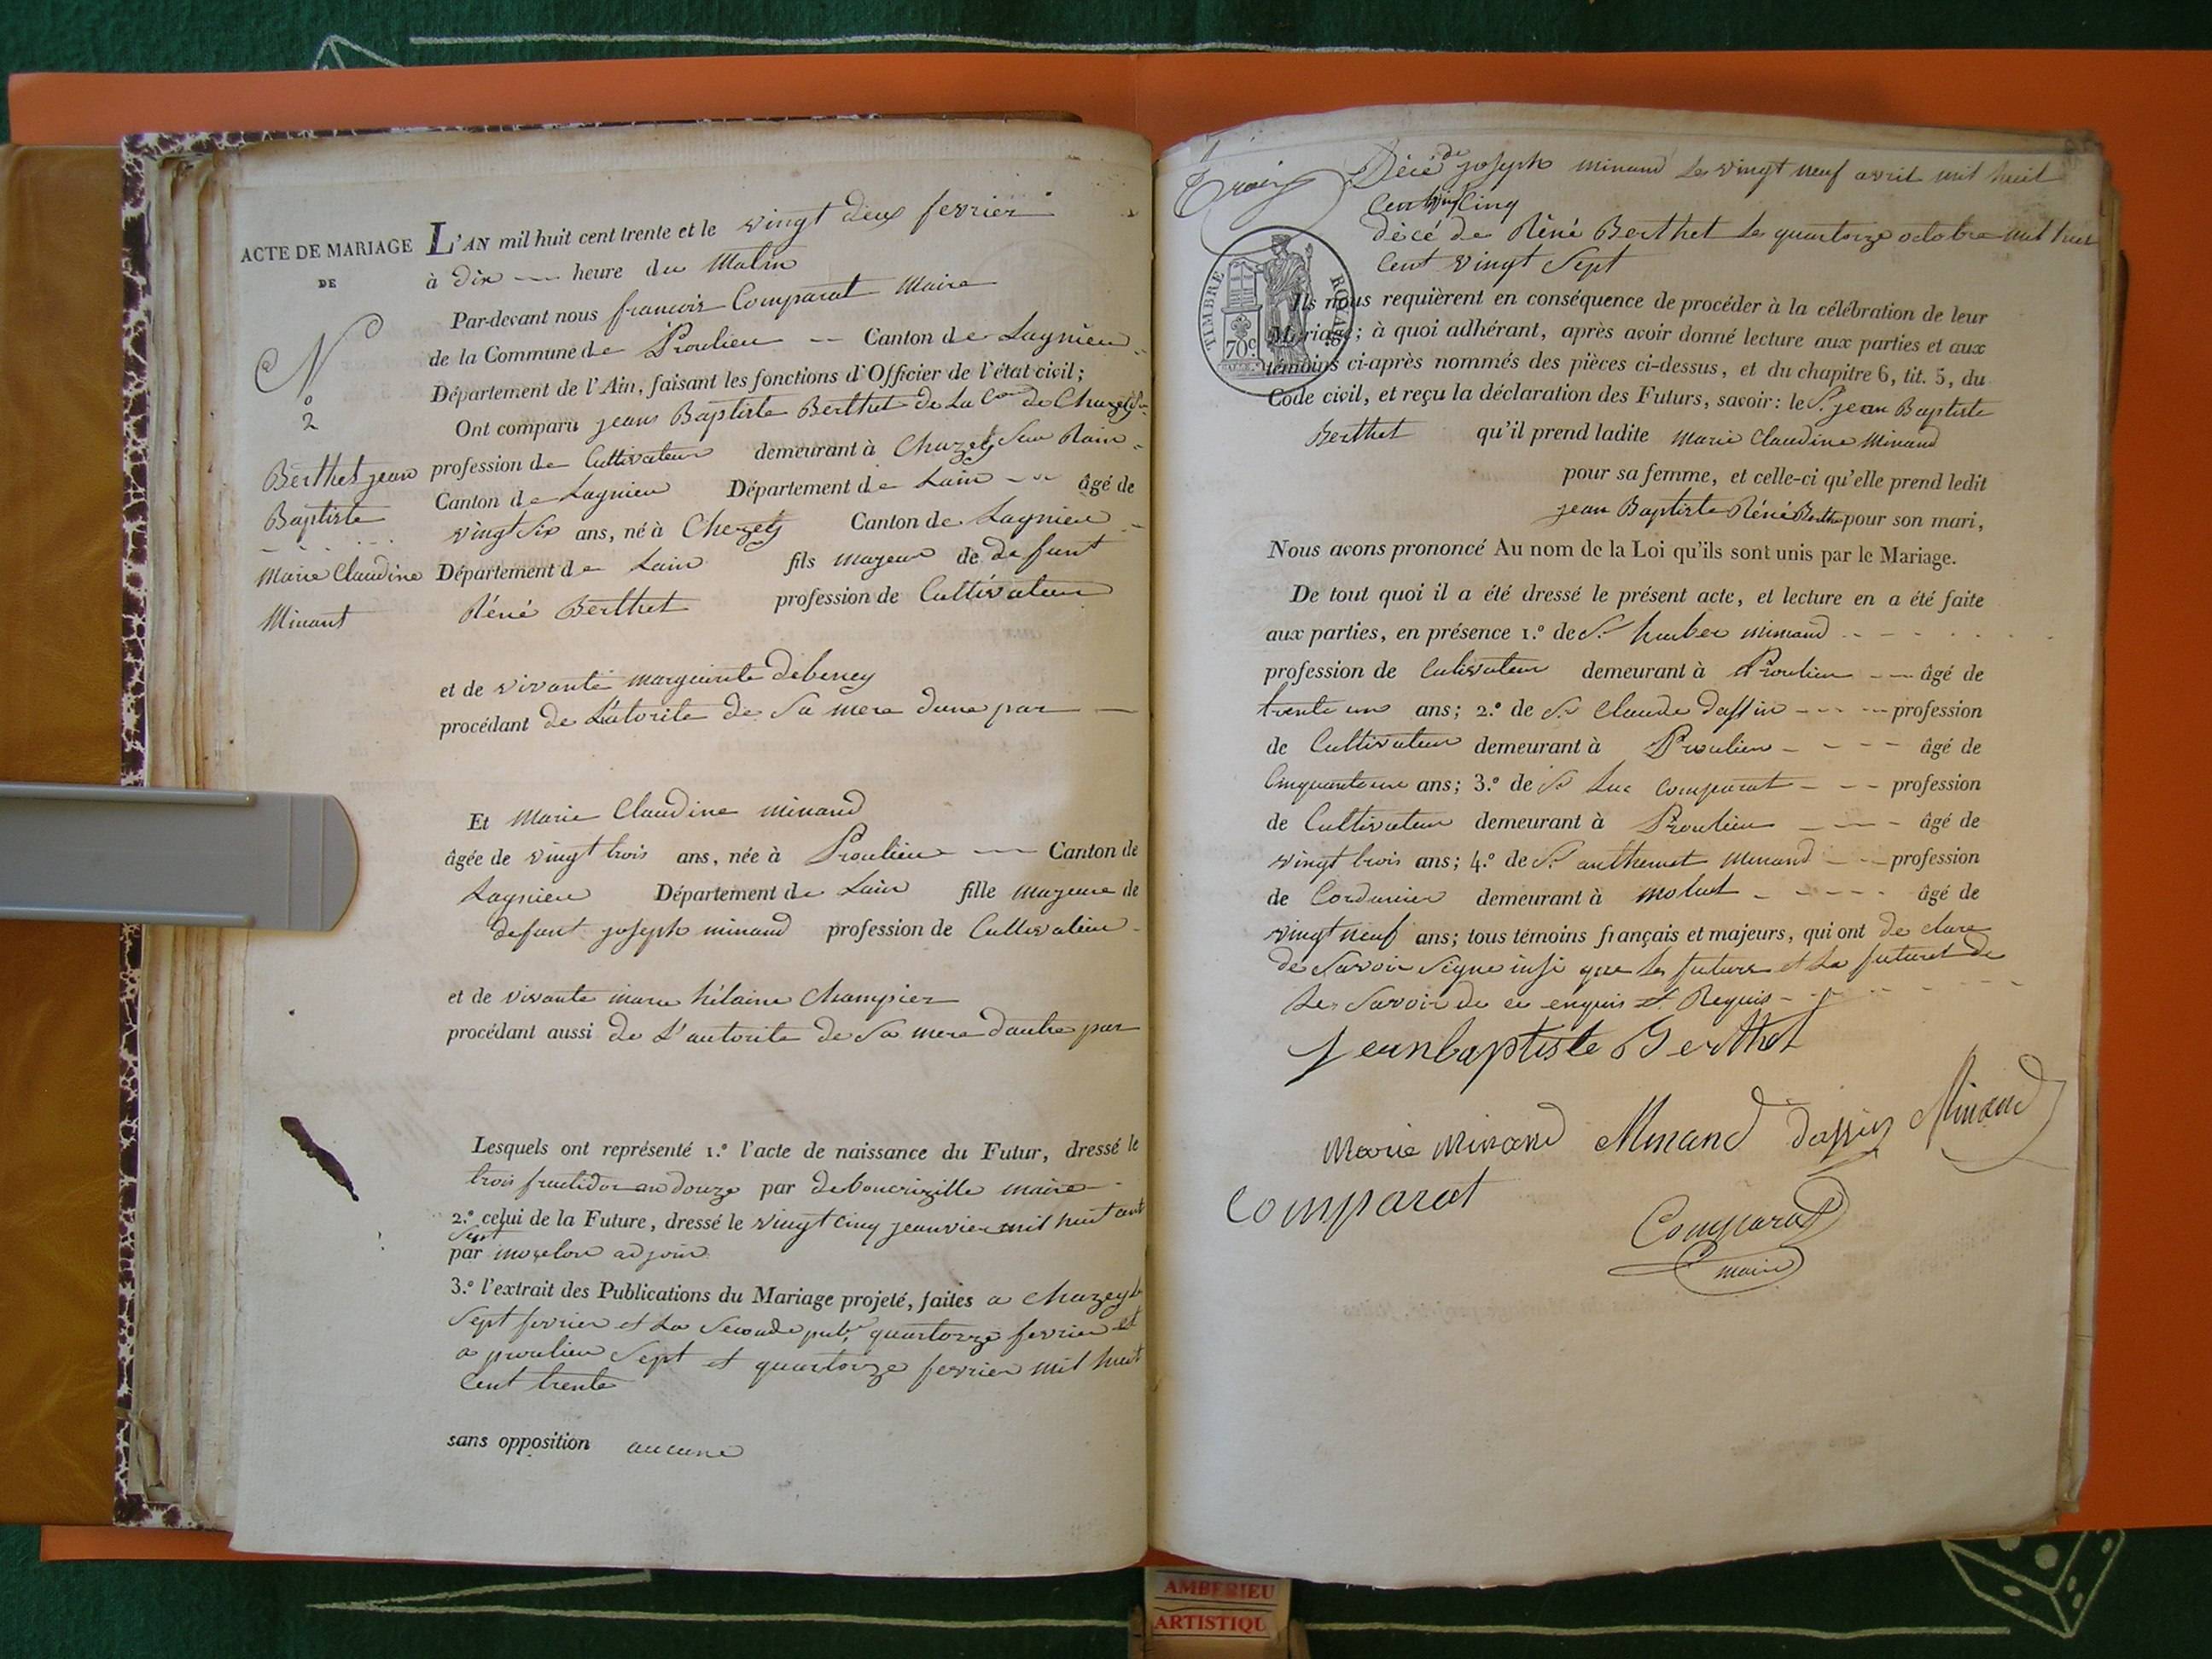 ACTE DE MARIAGE
DE
N
o
2
Berthet jean
Baptiste
Marie Claudine
Minant
L'AN mil huit cent trente et le vingt deux fevrier
à dix heure du Matin
Par-devant nous francois Comparat Maire
de la Commune de Proulieu Canton de Lagnieu
Département de l'Ain, faisant les fonctions d'Officier de l'état civil;
Ont comparu jean Baptiste Berthet de La Cne de Chazey
profession de Cultivateur demeurant à Chazey Sur
Canton de Lagnieu Département de Lain âgé de
vingt Six ans, né à Chezey Canton de Lagnieu
Département de Lain fils mageur de defunt
Réné Berthet profession de Cultivateur
et de vivante marguerite debeney
procédant de L'atorite de Sa mere dune par
Et Marie Claudine minand
âgée de vingt trois ans, née à Proulieu Canton de
Lagnieu Département de Lain fille mageure de
defunt joseph minand profession de Cultivateur
et de vivante marie hélaine Champier
procédant aussi de L'autorite de Sa mere dautre par
Lesquels ont représenté 1.º l'acte de naissance du Futur, dressé le
trois fructidor an douze par maire
2.º celui de la Future, dressé le vingt cinq jeanvier mil huit cent
Sept
par adjoin
3.º l'extrait des Publications du Mariage projeté, faites a chazey le
Sept fevrier et La Seconde pub. quartorze fevrier et
a proulieu Sept et quartorze fevrier mil huit
Cent trente
sans opposition aucune
Décé de joseph minand Le vingt neuf avril mil huit
Cent vingt Cinq
décé de Réné Berthet Le quartorze octobre mil huit
Cent vingt Sept
TIMBRE ROYAL
70c
Ils nous requièrent en conséquence de procéder à la célébration de leur
Mariage; à quoi adhérant, après avoir donné lecture aux parties et aux
témoins ci-après nommés des pièces ci-dessus, et du chapitre 6, tit. 5, du
Code civil, et reçu la déclaration des Futurs, savoir: le Sr jean Baptiste
Berthet qu'il prend ladite marie Claudine Minand
pour sa femme, et celle-ci qu'elle prend ledit
jean Baptiste Réné Berthet pour son mari,
Nous avons prononcé Au nom de la Loi qu'ils sont unis par le Mariage.
De tout quoi il a été dressé le présent acte, et lecture en a été faite
aux parties, en présence 1.º de Sr minand
profession de Cultivateur demeurant à Proulieu âgé de
trente un ans; 2.º de Sr Claude dassin profession
de Cultivateur demeurant à Proulieu âgé de
Cinquante un ans; 3.º de Sr Luc Comparat profession
de Cultivateur demeurant à Proulieu âgé de
vingt trois ans; 4.º de Sr anthemet Minand profession
de Cordunier demeurant à molut âgé de
vingt neuf ans; tous témoins français et majeurs, qui ont de clare
de Savoir Signe insi que Les futurs et La future de
Les Savoir de ce enquis et Requis
jeanbaptiste Berthet
Marie Minand Minand dassin Minand
Comparat
Comparat
maire
AMBERIEU
ARTISTIQU